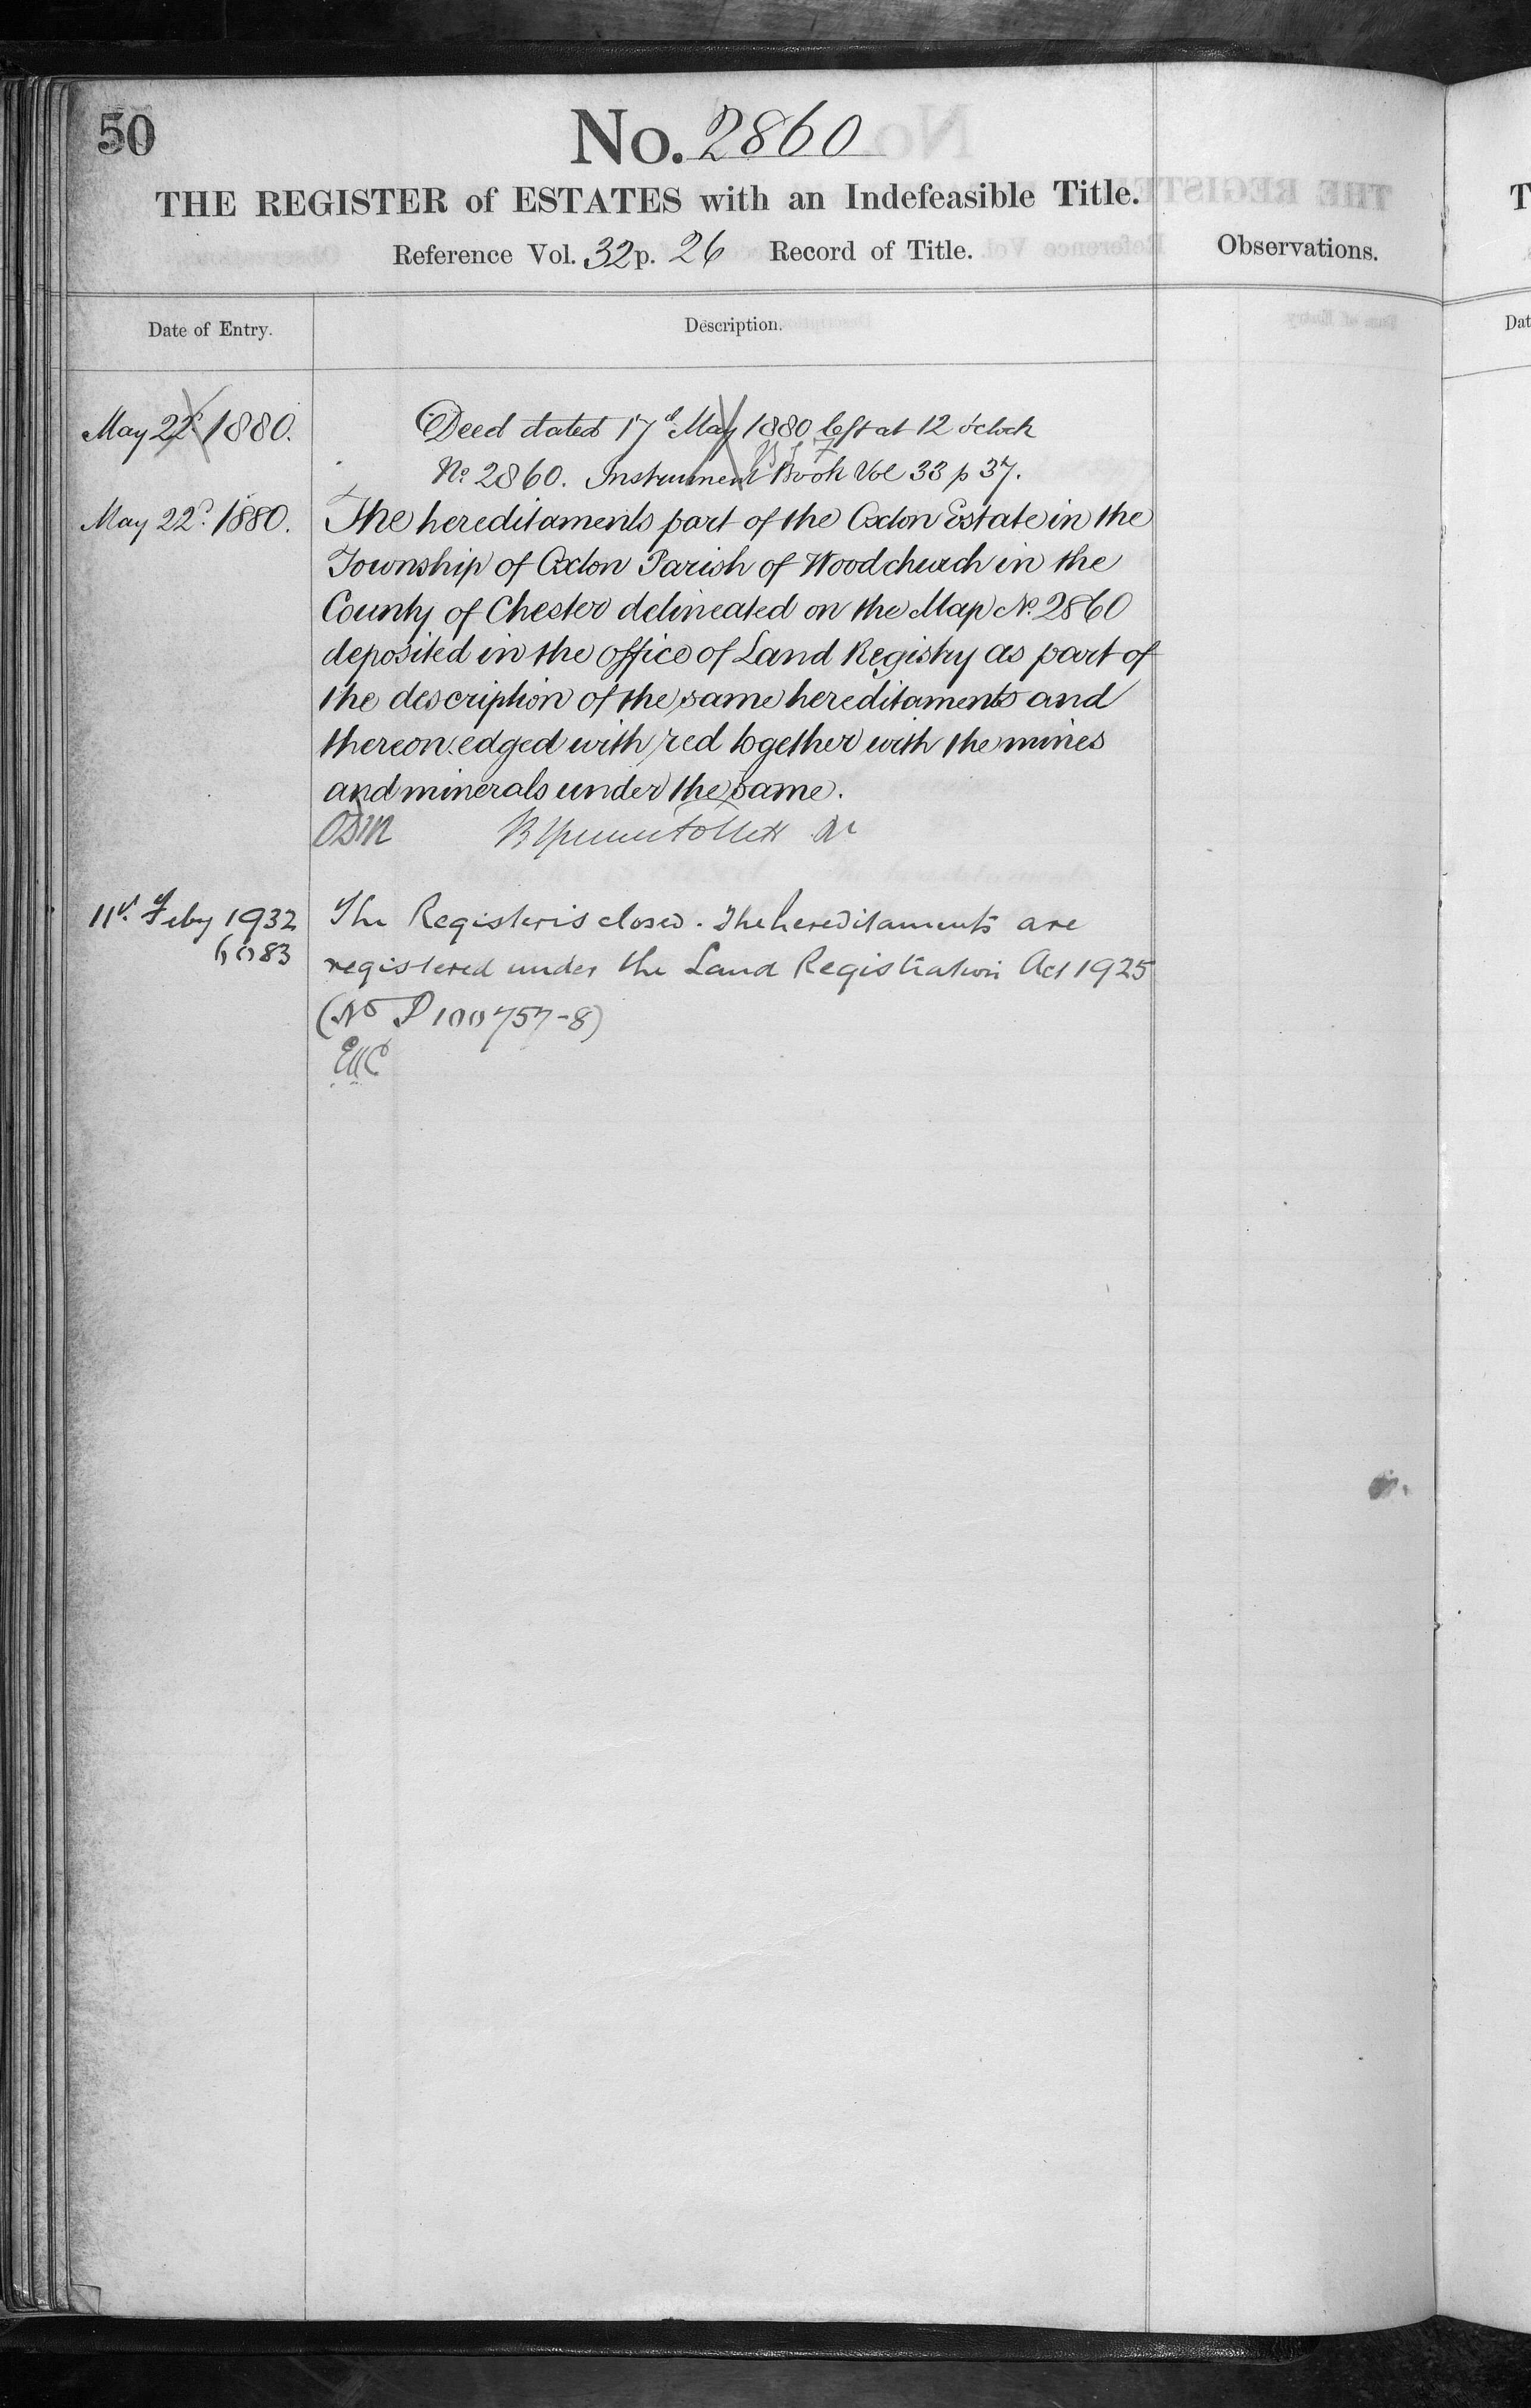 50
No. 2860
THE REGISTER of ESTATES with an Indefeasible Title.
Reference Vol. 32 p. 26 Record of Title.
Observations.
Date of Entry.
Description.
May 22d. 1880.
Deed dated 17th May 1880 left at 12 o'clock
No. 2860. Instrument Book Vol 33 p 37.
May 22d. 1880.
The hereditaments part of the Oxton Estate in the
Township of Oxton Parish of Woodchurch in the
County of Chester delineated on the Map No. 2860
deposited in the office of Land Registry as part of
the description of the same hereditaments and
thereon edged with red together with the mines
and minerals under the same.
11th. Feby 1932
6083
The Register is closed. The hereditaments are
registered under the Land Registration Act 1925
(No P 100757-8)